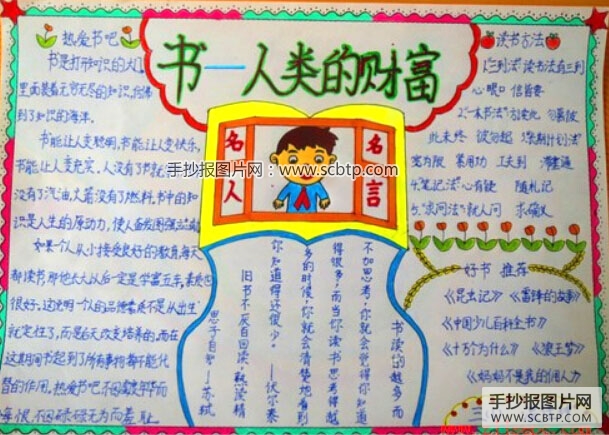 书—人类的财富
热爱书吧
书是打开知识的大门
里面装着无穷无尽的知识,
到了知识的海洋。
书能让人变聪明,书能让人变快乐,
书能让人变充实,人没有了书就
没有了汽油,火箭没有了燃料,书中的知
识是人生的原动力,使人奋发图强
如果一个人从小接受良好的教育,每天
都读书那他长大以后一定是学富五车,素质也
很好。这说明一个人的品德素质不是从出生
就定性了,而是后天改变培养的,而在
这期间书起到了所有事物都不能代
替的作用。热爱书吧 不因虚度年华而
悔恨,不因碌碌无为而羞耻
名人
名言
书读的越多而
不加思考,你就会觉得你知道
得很多;而当你读书思考得越
多的时候,你就会清楚地看到
你知道得还很少。
——伏尔泰
旧书不厌百回读,熟读精
思子自知——苏轼
读书方法
1."三到法"读书法有三到
心 眼 口 信皆要
此未终
宽为限 紧用功 工夫到 滞塞通
4."笔记法"心有疑 随札记
5."求问法"就人问 求确义
好书 推荐
《昆虫记》《雷锋的故事》
《中国少儿百科全书》
《十万个为什么》《狼王梦》
《妈妈不是我的佣人》
手抄报图片网:www.scbtp.com
手抄报图片网
WWW.SCBTP.COM